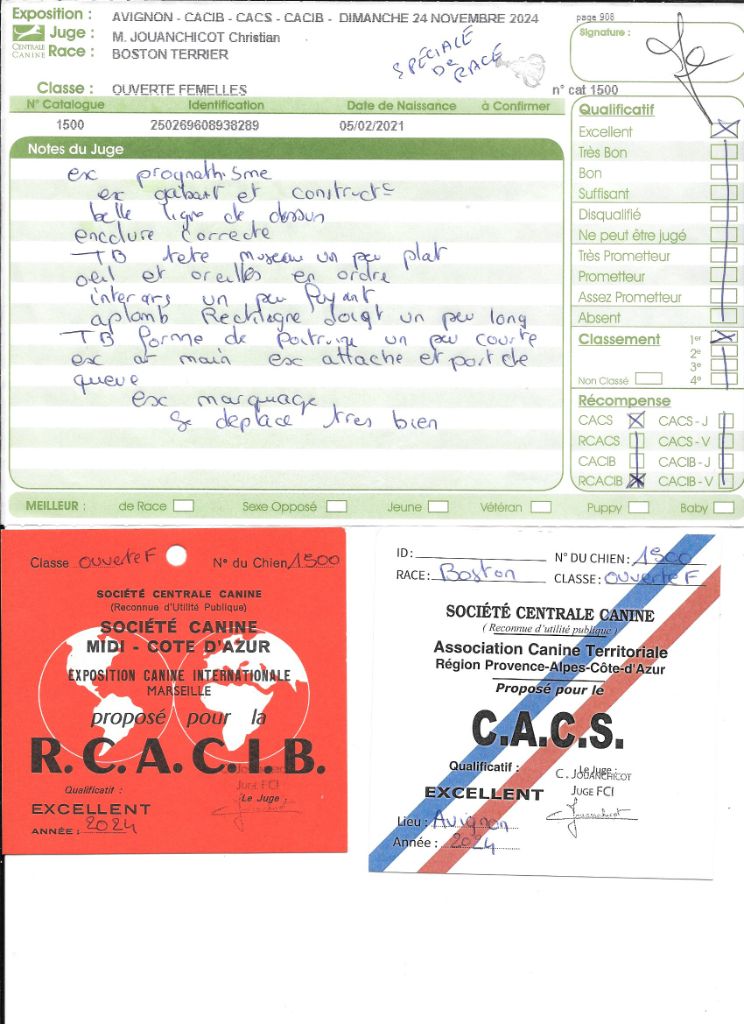 Exposition : AVIGNON - CACIB - CACS - CACIB - DIMANCHE 24 NOVEMBRE 2024
page 908
Juge : M. JOUANCHICOT Christian
CENTRALE CANINE
Race : BOSTON TERRIER
SPÉCIALE DE RACE
Signature :
Classe : OUVERTE FEMELLES
n° cat 1500
N° Catalogue Identification Date de Naissance à Confirmer
1500 250269608938289 05/02/2021
Notes du Juge
exc prognathisme
exc gabarit et construct°
belle ligne de dessus
encolure correcte
TB tete museau un peu plat
oeil et oreilles en ordre
un peu fuyant
aplomb Rectiligne doigt un peu long
TB forme de poitrine un peu courte
exc ar main exc attache et port de
queue
exc marquage
se deplace tres bien
Qualificatif
Excellent
Très Bon
Bon
Suffisant
Disqualifié
Ne peut être jugé
Très Prometteur
Prometteur
Assez Prometteur
Absent
Classement 1er
2e
3e
Non Classé 4e
Récompense
CACS CACS - J
RCACS CACS - V
CACIB CACIB - J
RCACIB CACIB - V
MEILLEUR : de Race Sexe Opposé Jeune Vétéran Puppy Baby
Classe ouverte F N° du Chien 1500
SOCIÉTÉ CENTRALE CANINE
(Reconnue d'Utilité Publique)
SOCIÉTÉ CANINE
MIDI - COTE D'AZUR
EXPOSITION CANINE INTERNATIONALE
MARSEILLE
proposé pour la
R. C. A. C. I. B.
Qualificatif :
Juge FCI
Le Juge :
EXCELLENT
ANNÉE : 2024
ID :
N° DU CHIEN : 1500
RACE : Boston CLASSE : ouverte F
SOCIÉTÉ CENTRALE CANINE
( Reconnue d'utilité publique )
Association Canine Territoriale
Région Provence-Alpes-Côte-d'Azur
Proposé pour le
C.A.C.S.
Qualificatif :
Le Juge :
C. JOUANCHICOT
EXCELLENT
JUGE FCI
Jouanchicot
Lieu : Avignon
Année : 2024